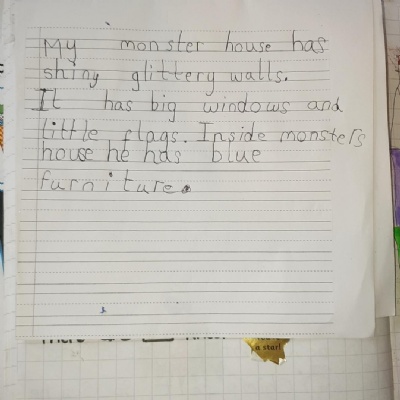 My monster house has
shiny glittery walls.
It has big windows and
little flags. Inside monsters
house he has blue
furniture.
a star!